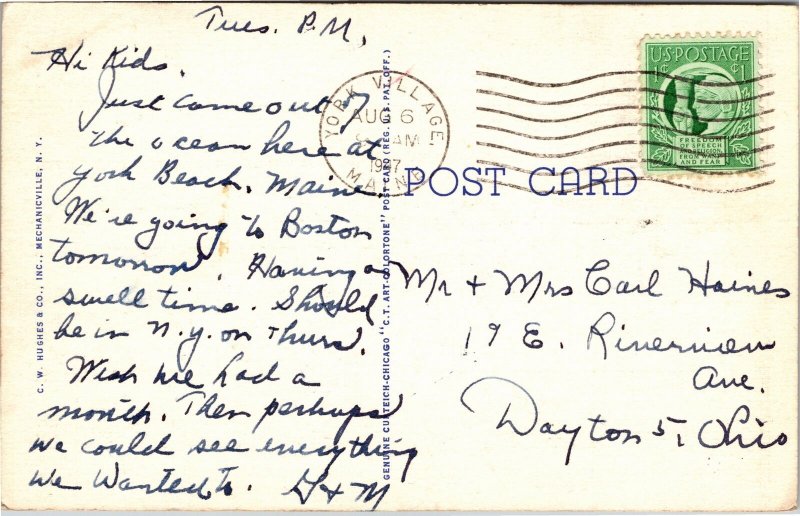 Tues. P.M,
Hi Kids,
Just came out of
the ocean here at
York Beach, Maine.
We're going to Boston
tomorrow. Having a
swell time. Should
be in N.Y. on Thurs.
Wish we had a
month. Then perhaps
we could see everything
we wanted to. G & M
C. W. HUGHES & CO., INC., MECHANICVILLE, N. Y.
GENUINE CURTEICH-CHICAGO "C.T. ART-COLORTONE" POST CARD (REG. U.S. PAT. OFF.)
YORK VILLAGE,
AUG 6
AM
1947
MAINE
U·S·POSTAGE
1¢ ¢1
FREEDOM
OF SPEECH
AND RELIGION,
FROM WANT
AND FEAR
POST CARD
Mr & Mrs Carl Haines
19 E. Riverview
Ave.
Dayton 5, Ohio